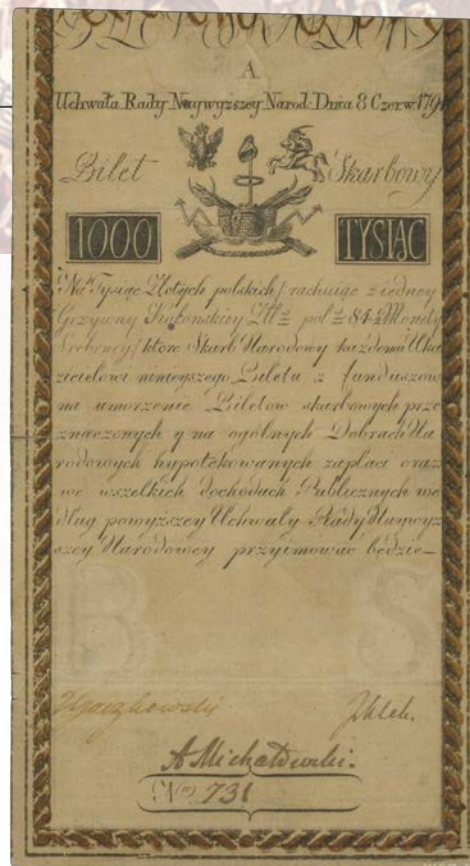 A
Uchwała Rady Naywyższey Narod: Dnia 8 Czerw: 179
Bilet Skarbowy
1000 TYSIĄC
Na Tysiąc Złotych polskich / rachuiąc z iedney
Grzywny Kolońskiey Złł pol 84½ Monety
Srebrney / które Skarb Narodowy każdemu Oka
zicielowi ninieyszego Biletu z funduszow
na umorzenie Biletow skarbowych prze
znaczonych y na ogólnych Dobrach Na
rodowych hypotekowanych zapłaci oraz
we wszelkich dochodach Publicznych we
dług powyższey Uchwały Rady Naywyż
szey Narodowey przyimować będzie
B S
A Michałowski.
N(ro) 731